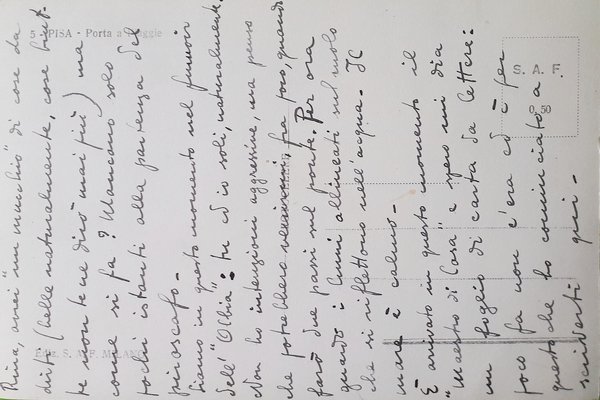 Rina, avrei "un mucchio" di cose da
dirti (belle naturalmente, cose brut-
te non te ne dirò mai più) ma
come si fa? Mancano solo
pochi istanti alla partenza del
piroscafo -
Siamo in questo momento nel fumoir
dell'"Olbia": tu ed io soli, naturalmente.
Non ho intenzioni aggressive, ma penso
che potrebbero venirmi, fra poco, quando
farò due passi sul ponte. Per ora
guardo i lumi allineati sul molo
che si riflettono nell'acqua. Il
mare è calmo -
È arrivato in questo momento il
"Maestro di Casa" e spero mi dia
un foglio di carta da lettere:
poco fa non c'era ed è per
questo che ho cominciato a
scriverti qui -
5 - PISA - Porta a Piaggie
S. A. F.
0,50
Ediz. S. A. F. MILANO